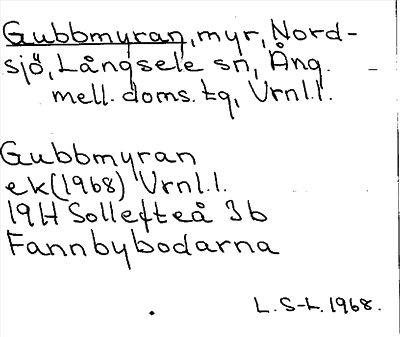 Gubbmyran, myr, Nord-
sjö, Långsele sn, Ång.
mell. doms. tg, Vrnl.l.
Gubbmyran
ek(1968) Vrnl.l.
19H Sollefteå 3b
Fannbybodarna
L. S-L. 1968.